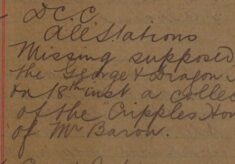 D C. C
All Stations
Missing supposed
the George & Dragon
on 18th inst a collec
of the Cripples Hom
of Mr Baron.